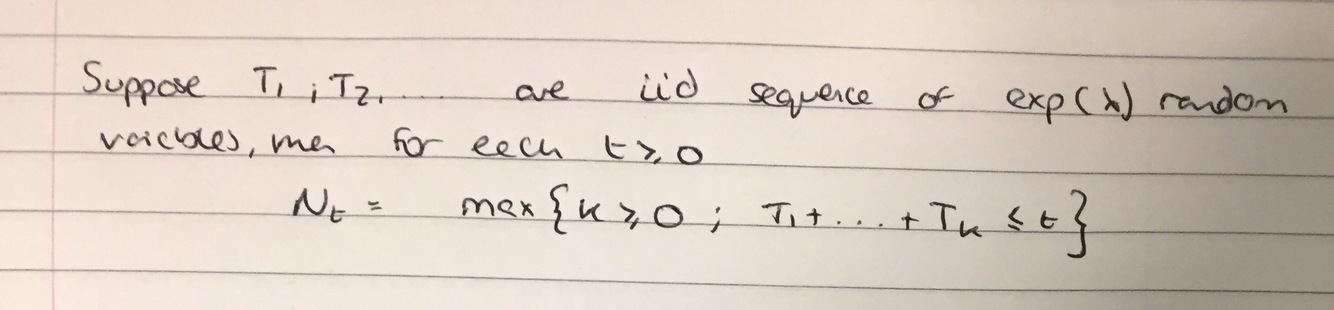 Suppose T₁, T₂, .... are iid sequence of exp(λ) random
variables, then for each t ≥ 0
N_t = max{k ≥ 0 ; T₁ + ... + T_k ≤ t}